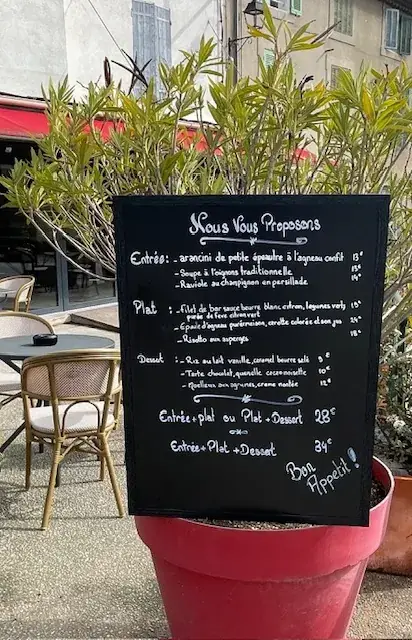 Nous Vous Proposons
Entrée: - arancini de petite épeautre à l'agneau confit 13€
- Soupe à l'oignons traditionnelle
- Raviole au champignon en persillade 14€
Plat : - filet de bar sauce beurre blanc citron, légumes vert,
purée de fève citron vert
- Epaule d'agneau purée maison, carotte colorée et son jus 24€
- Risotto aux asperges 18€
Dessert : - Riz au lait vanille, caramel beurre salé 9€
- Tarte chocolat, quenelle cacao noisette 10€
- Moelleux aux agrumes, creme montée 12€
Entrée + plat ou Plat + Dessert 28€
Entrée + Plat + Dessert 34€
Bon
Appetit !